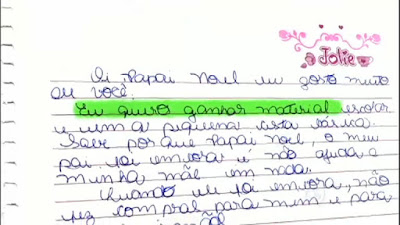 Jolie
Oi Papai Noel eu gosto muito
de você.
Eu quero ganhar material escolar
e uma pequena cesta básica.
Sabe por que Papai Noel, o meu
pai foi emvora e não ajuda a
minha mãe em nada.
Quando ele foi emvora, não
fez compras para mim e para